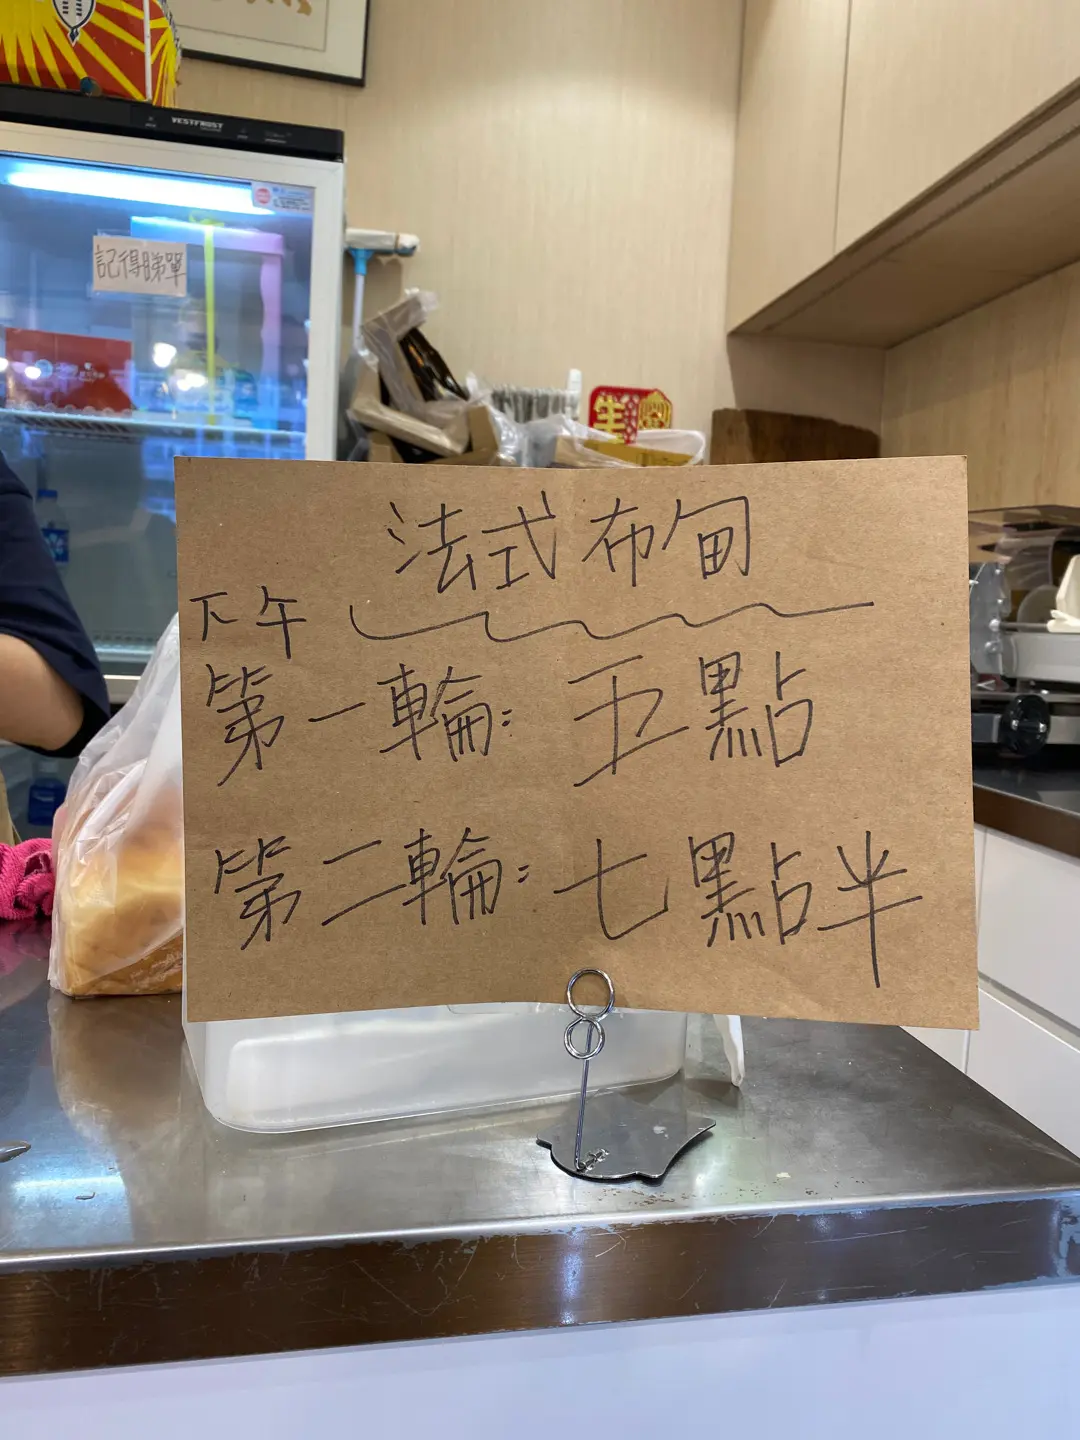 VESTFROST
記得睇單
法式布甸
下午
第一輪：五點
第二輪：七點半